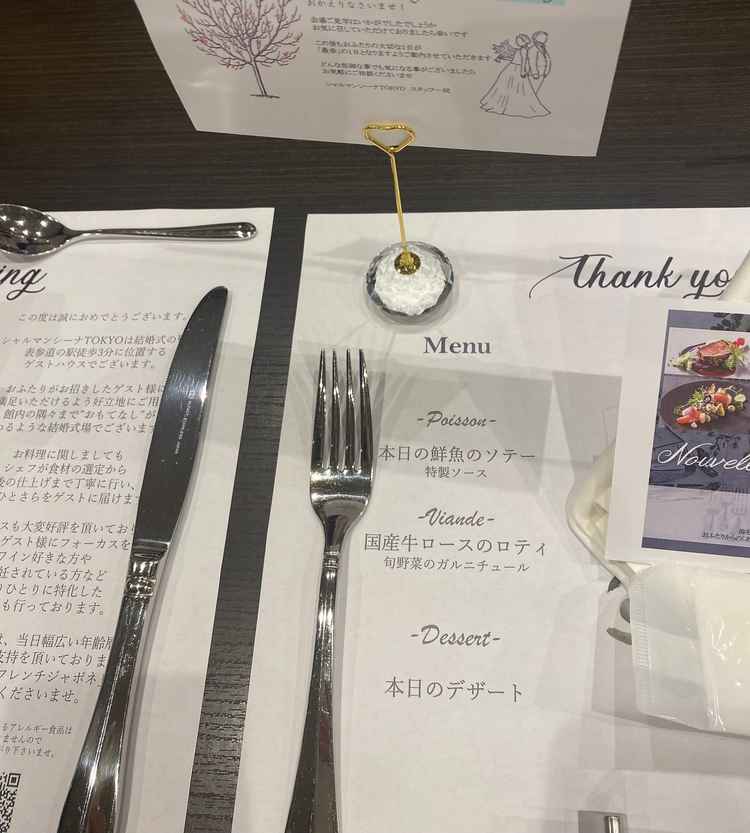 おかえりなさいませ！
会場ご見学はいかがでしたでしょうか
お気に召していただけておりましたら幸いです
この後もおふたりの大切な1日が
「最幸」の1日となりますようご案内させていただきます
どんな些細な事でも気になる事がございましたら
お気軽にご相談くださいませ
シャルマンシーナTOKYO スタッフ一同
ing
この度は誠におめでとうございます。
シャルマンシーナTOKYOは結婚式の
表参道の駅徒歩3分に位置する
ゲストハウスでございます。
おふたりがお招きしたゲスト様に
満足いただけるよう好立地にご用
館内の隅々まで"おもてなし"が
わるような結婚式場でございます
お料理に関しましても
シェフが食材の選定から
後の仕上げまで丁寧に行い、
ひとさらをゲストに届けま
スも大変好評を頂いており
ゲスト様にフォーカスを
ワイン好きな方や
妊されている方など
りひとりに特化した
も行っております。
は、当日幅広い年齢層
支持を頂いておりま
フレンチジャポネ
くださいませ。
るアレルギー食品は
ませんので
下さいませ。
Thank yo
Menu
-Poisson-
本日の鮮魚のソテー
特製ソース
-Viande-
国産牛ロースのロティ
旬野菜のガルニチュール
-Dessert-
本日のデザート
Nouvel